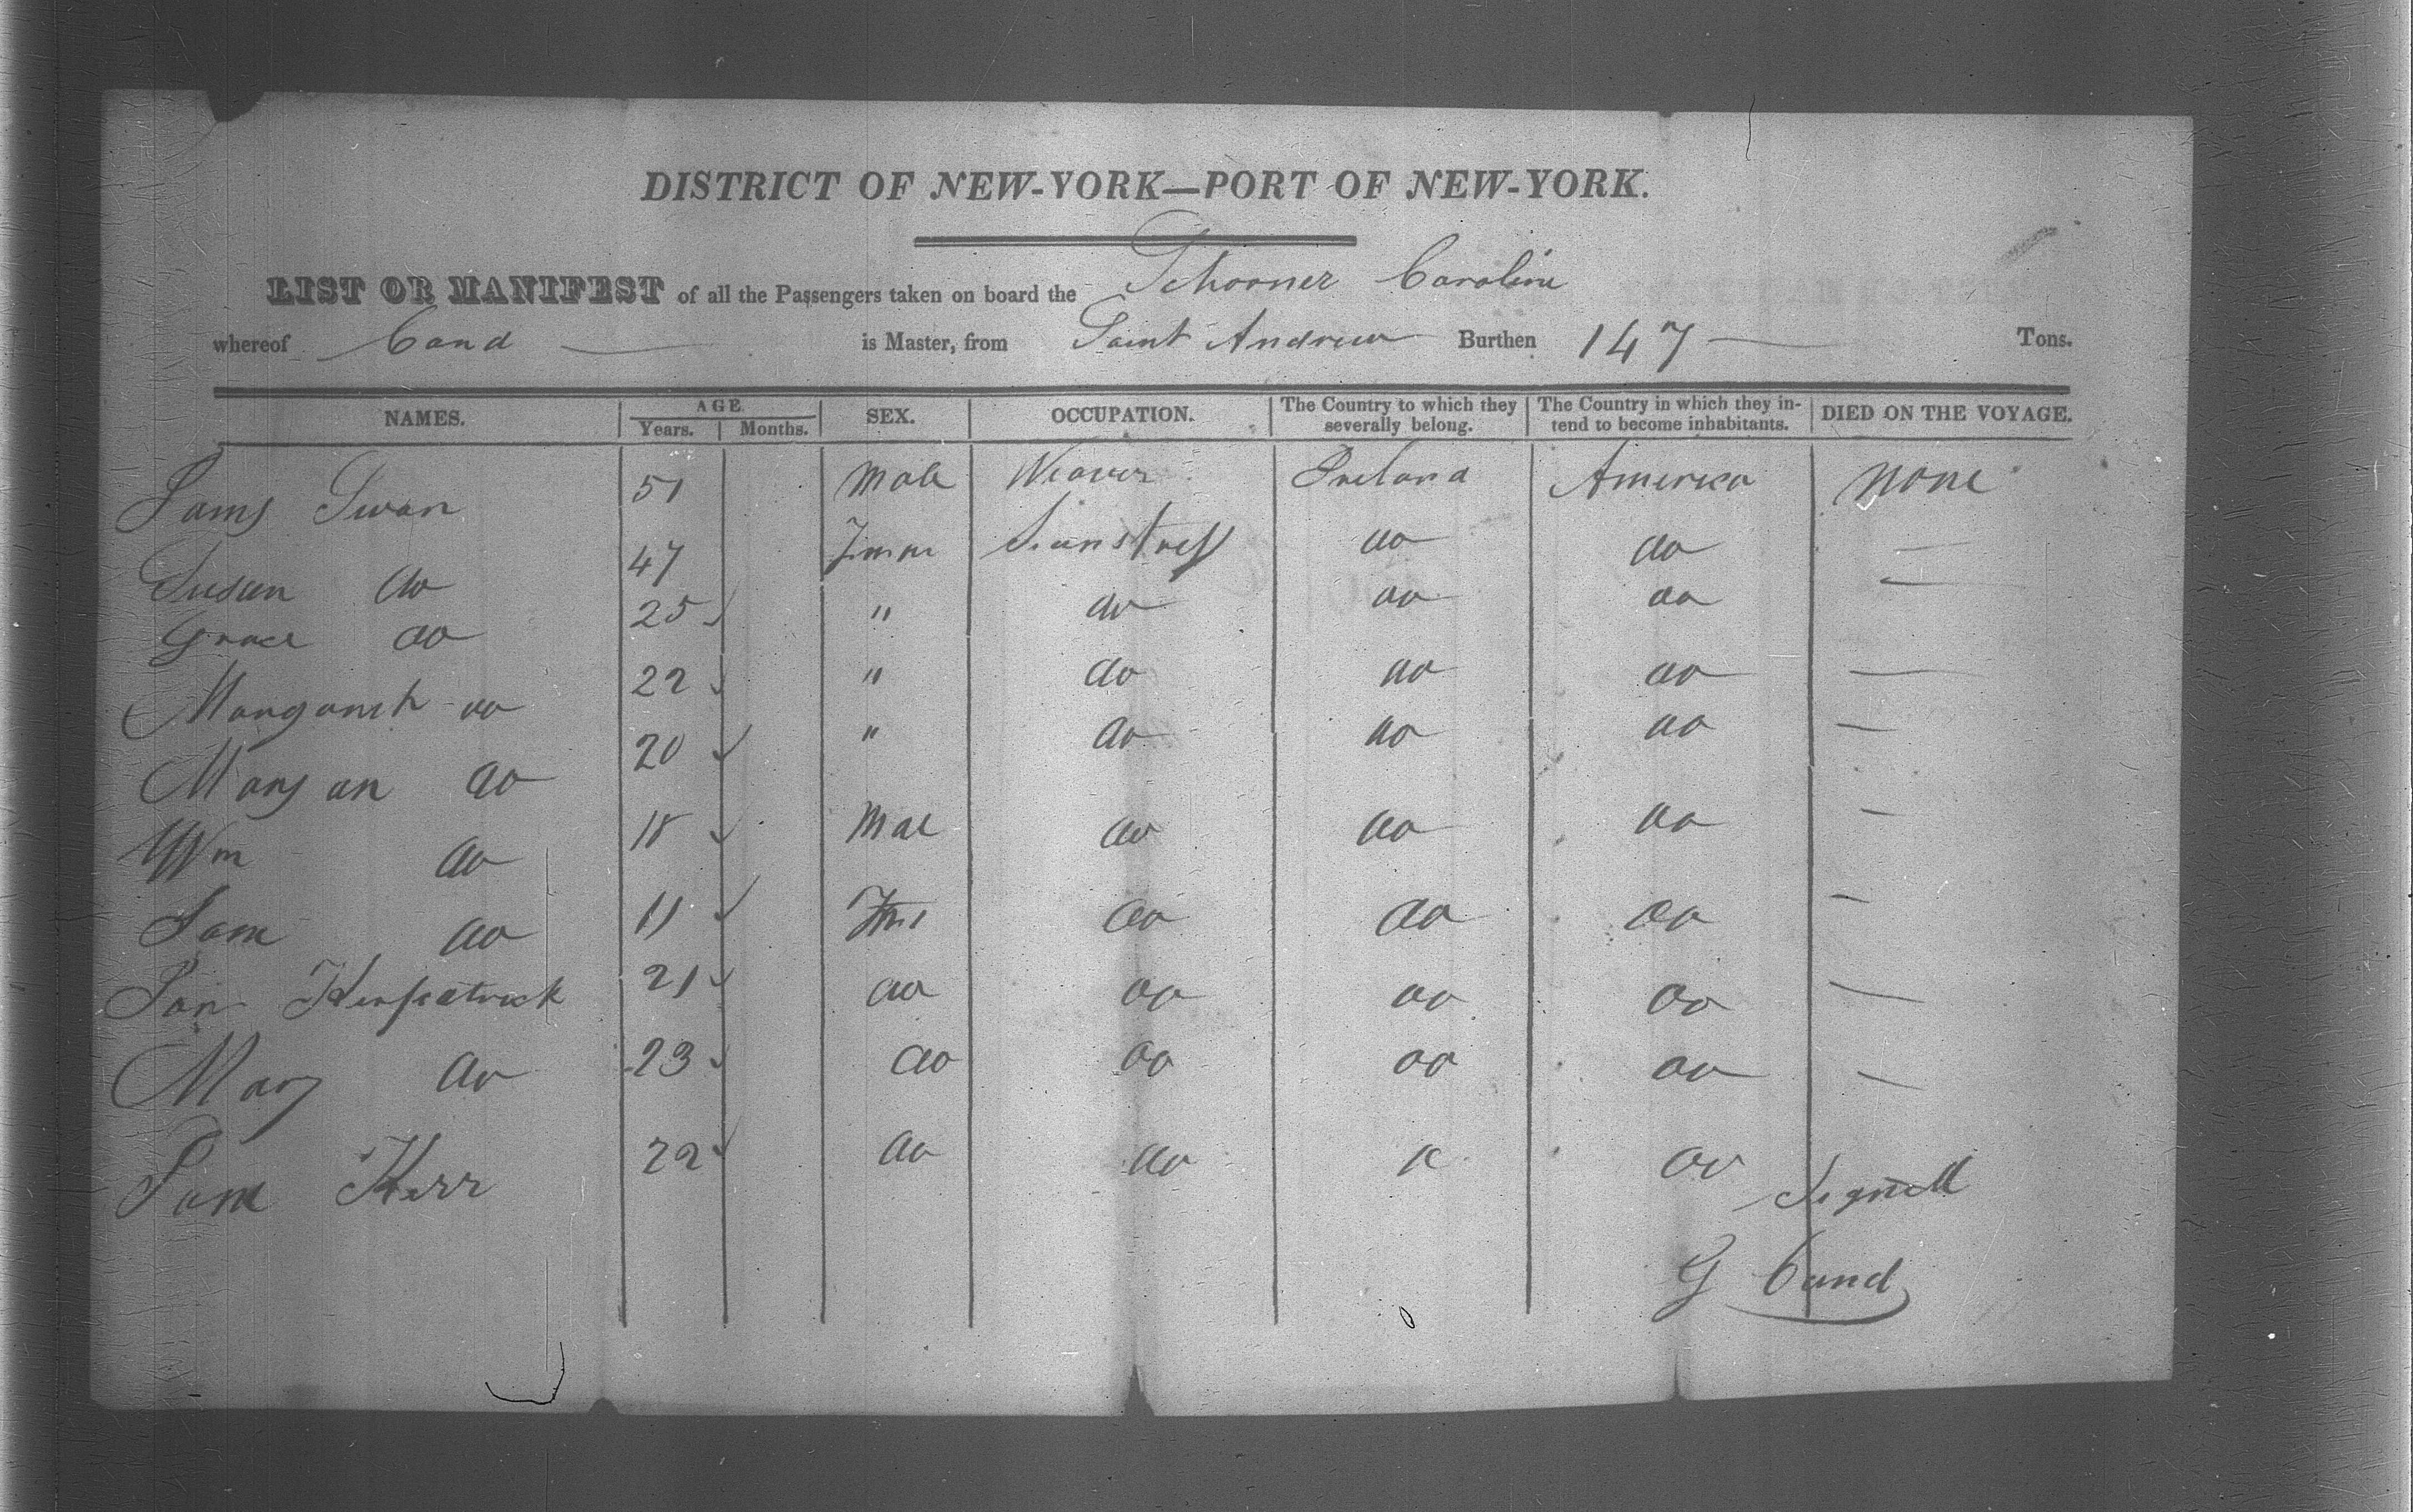 DISTRICT OF NEW-YORK—PORT OF NEW-YORK.
LIST OR MANIFEST of all the Passengers taken on board the Schooner Caroline
whereof Cand is Master, from Saint Andrew Burthen 147 Tons.
NAMES. AGE Years. Months. SEX. OCCUPATION. The Country to which they severally belong. The Country in which they intend to become inhabitants. DIED ON THE VOYAGE.
Jams Swan 51 Male Weaver Ireland America None
Susan do 47 do do
Grace do 25 " do do do
do 22 " do do do
Mary an do 20 " do do do
Wm do 18 Mal do do do
Jane do 11 do do do
Kerkpatrick 21 do do do do
Mary do 23 do do do do
Jane Kerr 22 do do do
Signed
G Cand